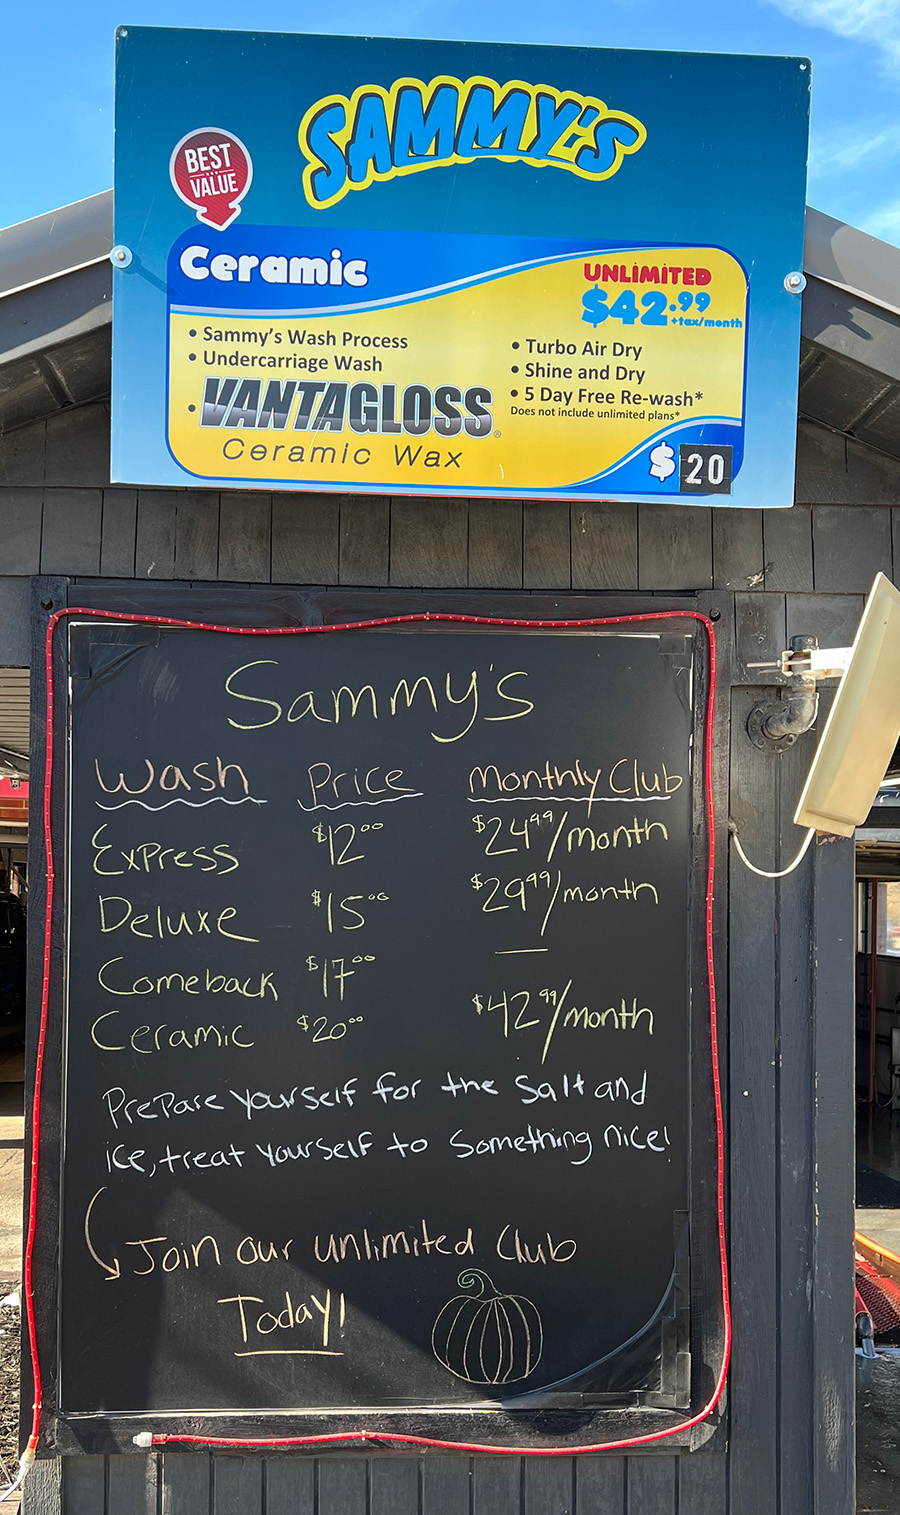 SAMMY'S
BEST
VALUE
Ceramic
UNLIMITED
$42.99
+tax/month
• Sammy's Wash Process
• Undercarriage Wash
• VANTAGLOSS®
Ceramic Wax
• Turbo Air Dry
• Shine and Dry
• 5 Day Free Re-wash*
Does not include unlimited plans*
$20
Sammy's
Wash Price Monthly Club
Express $12.00 $24.99/month
Deluxe $15.00 $29.99/month
Comeback $17.00 —
Ceramic $20.00 $42.99/month
Prepare yourself for the salt and
ice, treat yourself to something nice!
Join our unlimited Club
Today!